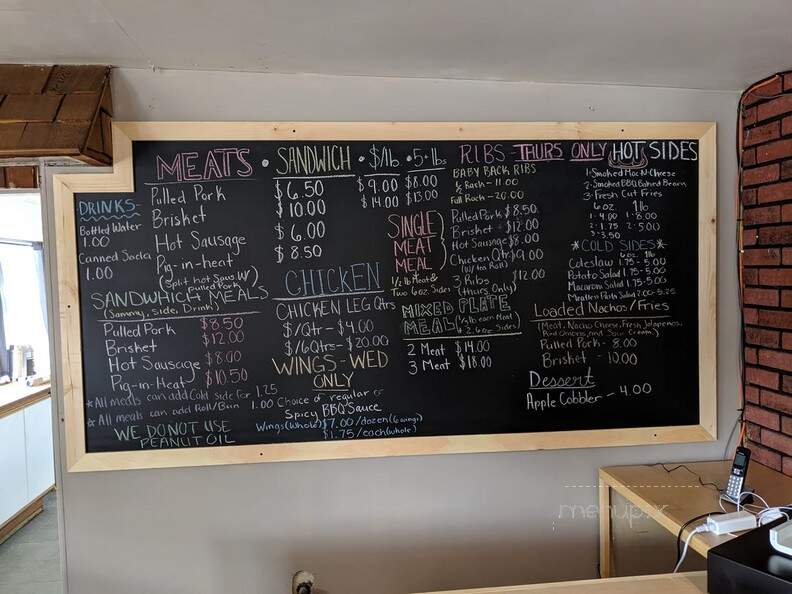 MEATS • SANDWICH • $/lb. • 5+lbs
Pulled Pork $6.50 $9.00 $8.00
Brisket $10.00 $14.00 $13.00
Hot Sausage $6.00
Pig-in-heat $8.50
(Split hot Saus. w/
Pulled Pork)
DRINKS-
Bottled Water
1.00
Canned Soda
1.00
SANDWHICH MEALS
(Sammy, side, Drink)
Pulled Pork $8.50
Brisket $12.00
Hot Sausage $8.00
Pig-in-Heat $10.50
*All meals can add Cold side for 1.25
*All meals can add Roll/Bun 1.00
WE DO NOT USE
PEANUT OIL
CHICKEN
CHICKEN LEG Qtrs
$/Qtr - $4.00
$/6Qtrs - $20.00
WINGS - WED
ONLY
Choice of regular or
Spicy BBQ Sauce
Wings(whole) $7.00/dozen(6 wings)
$1.75/each(whole)
RIBS - THURS ONLY
BABY BACK RIBS
½ Rack - 11.00
Full Rack - 20.00
SINGLE
MEAT
MEAL
½ lb Meat &
Two 6oz. Sides
Pulled Pork $8.50
Brisket - $12.00
Hot Sausage $8.00
Chicken Qtr $9.00
3 Ribs $12.00
(Thurs Only)
MIXED PLATE
MEAL
2 Meat $14.00
3 Meat $18.00
HOT SIDES
1-Smoked Mac-N-Cheese
2-Smoked BBQ Baked Beans
3-Fresh Cut Fries
6oz. 1lb
1-4.00 1-8.00
2-1.75 2-5.00
3-3.50
*COLD SIDES*
6oz. 1lb
Coleslaw 1.75 - 5.00
Potato Salad 1.75-5.00
Macaroni Salad 1.75-5.00
Meatless Pasta Salad 2.00-5.25
Loaded Nachos/Fries
(Meat, Nacho Cheese, Fresh Jalapenos,
Red Onions, and Sour Cream)
Pulled Pork - 8.00
Brisket - 10.00
Dessert
Apple Cobbler - 4.00
menupix